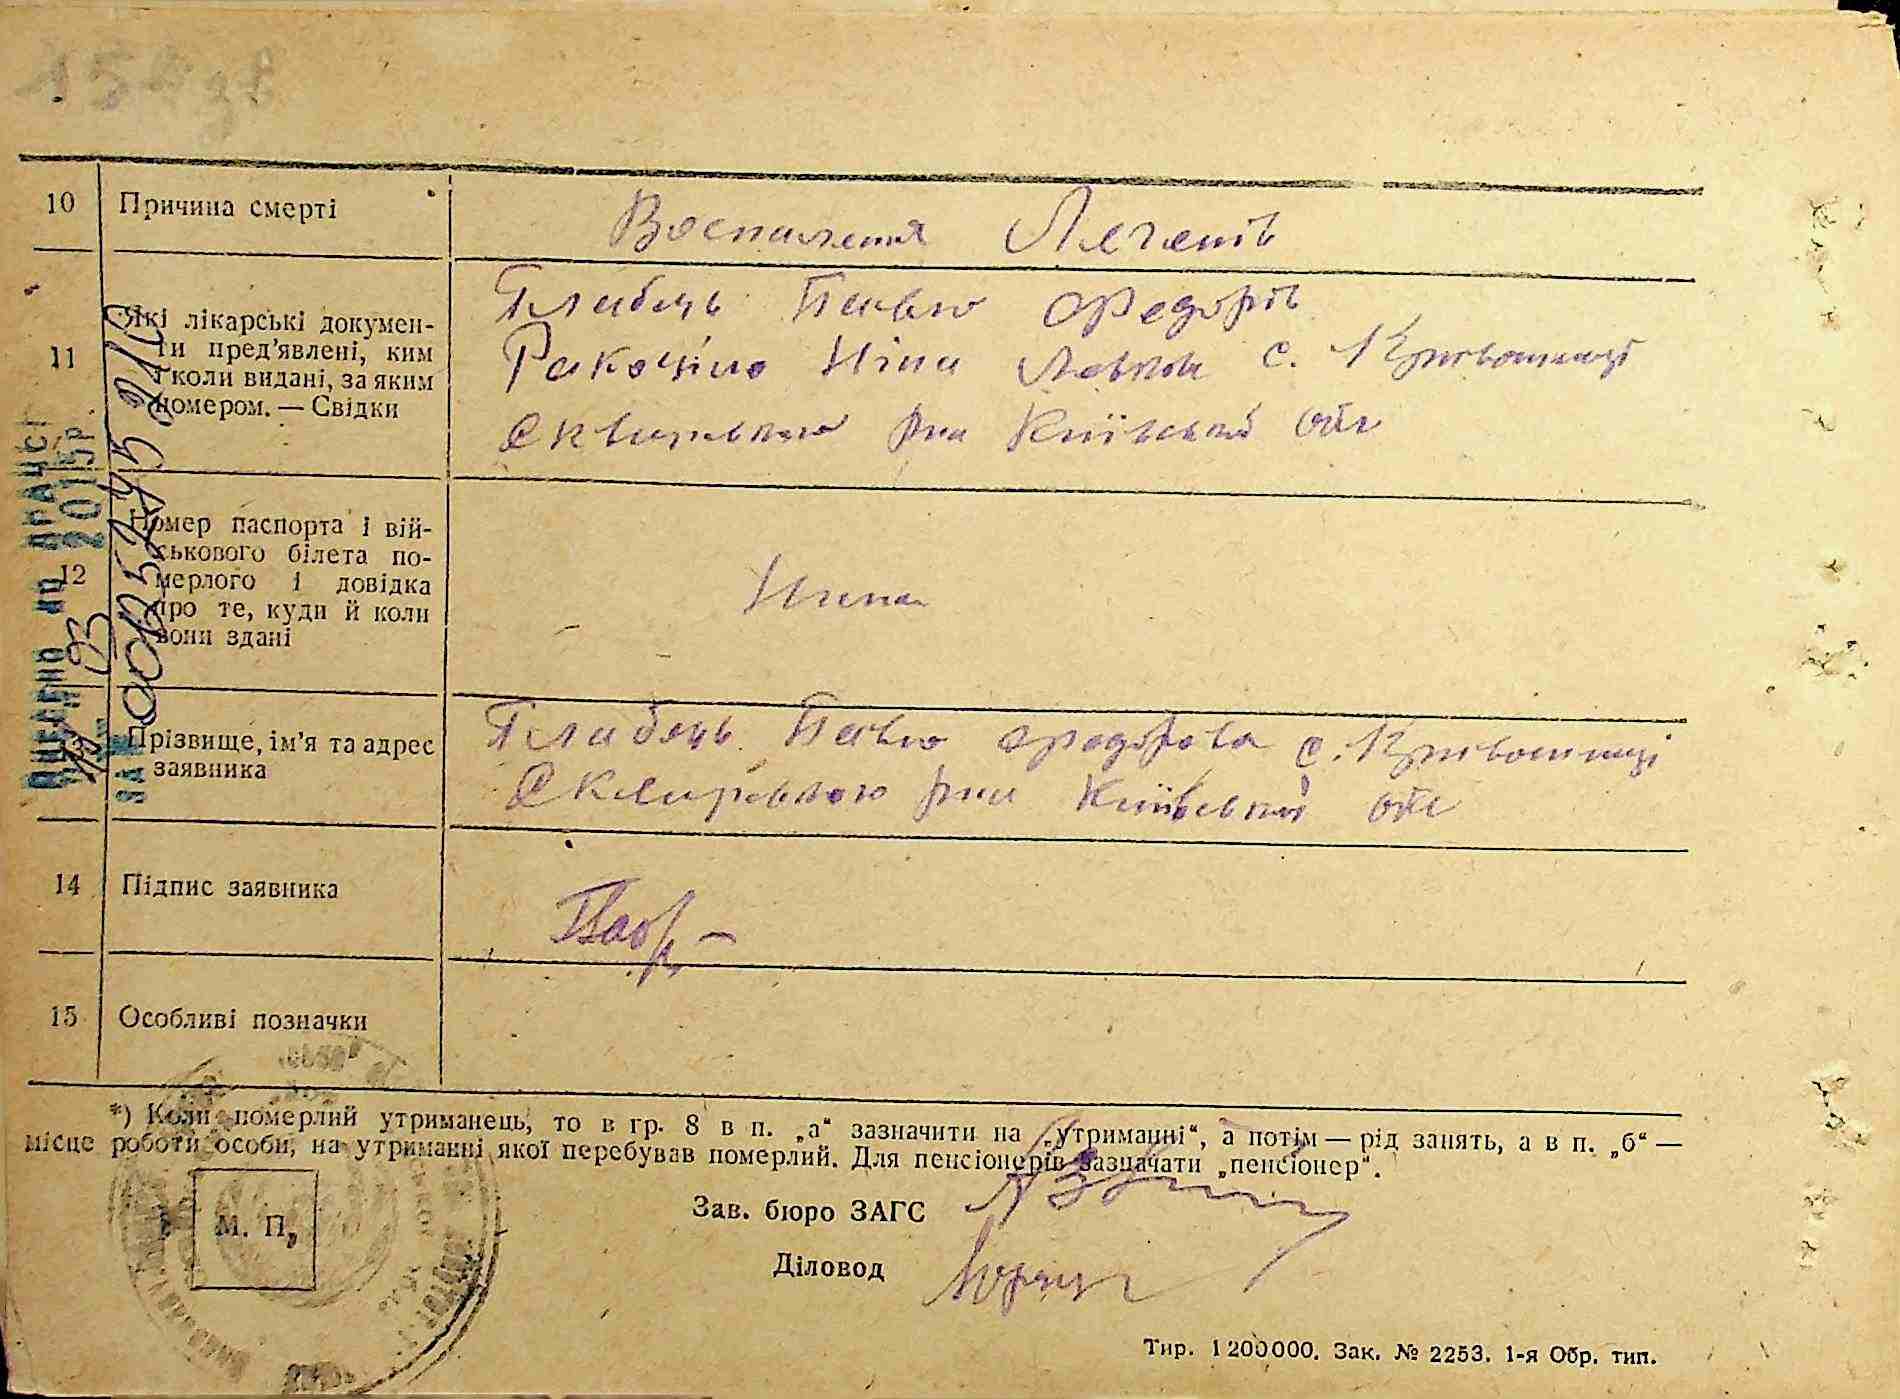 10 Причина смерті
Воспаления Легенів
11 Які лікарські докумен-
ти пред'явлені, ким
і коли видані, за яким
номером. — Свідки
Павло Федорів
Ніна с. Кривошиінці
Сквирського р-на Київської обл
12 Номер паспорта і вій-
ськового білета по-
мерлого і довідка
про те, куди й коли
вони здані
Нима
13 Прізвище, ім'я та адрес
заявника
Павло Федорова с. Кривошиінці
Сквирського р-на Київської обл
14 Підпис заявника
15 Особливі позначки
*) Коли померлий утриманець, то в гр. 8 в п. „а“ зазначити на „утриманні“, а потім — рід занять, а в п. „б“ —
місце роботи особи, на утриманні якої перебував померлий. Для пенсіонерів зазначати „пенсіонер“.
М. П.
Зав. бюро ЗАГС
Діловод
Тир. 1 200 000. Зак. № 2253. 1-я Обр. тип.
ВНЕСЕНО ДО ДРАЦС
03 2015р.
ЗА №